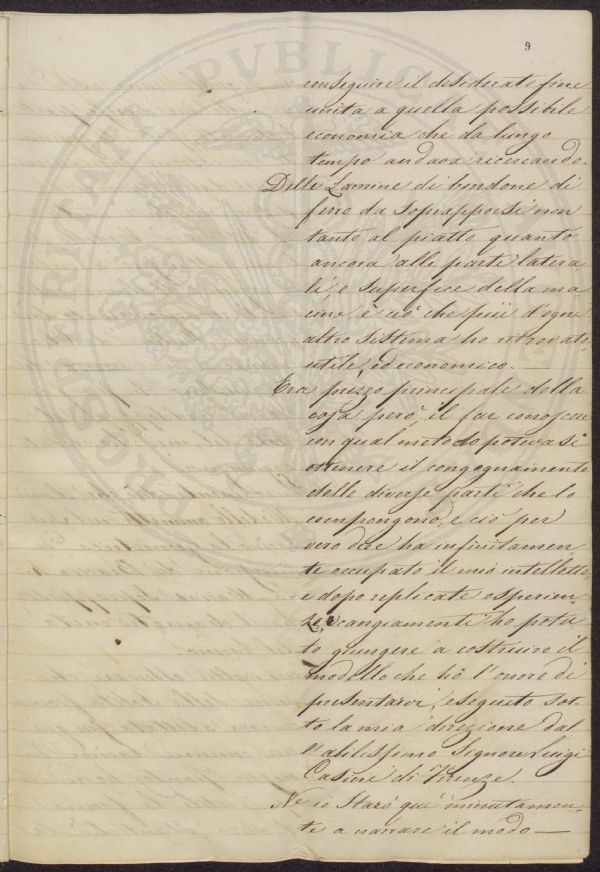 9
conseguire il desiderato fine
unita a quella possibile
economia che da lungo
tempo andava ricercando.
Delle Lamine di bandone di
ferro da soprapporsi non
tanto al piatto quanto
ancora alle parti latera
li e superfice della ma
cine è ciò che più d'ogni
altro sistema ho ritrovato
utile, ed economico. —
Era prezzo principale della
cosa però il far conoscere
con qual metodo potevasi
ottenere il congegnamento
delle diverse parti che lo
compongono, e ciò per
vero dire ha infinitamen
te occupato il mio intelletto
e dopo replicate esperien
ze, e cangiamenti ho potu
to giungere a costruire il
modello che hò l'onore di
presentarvi, eseguito sot-
to la mia direzione dal
l'abilissimo Signore Luigi
Casini di Firenze.
Ne io starò quì minutamen-
te a narrare il modo —
PVBLICO